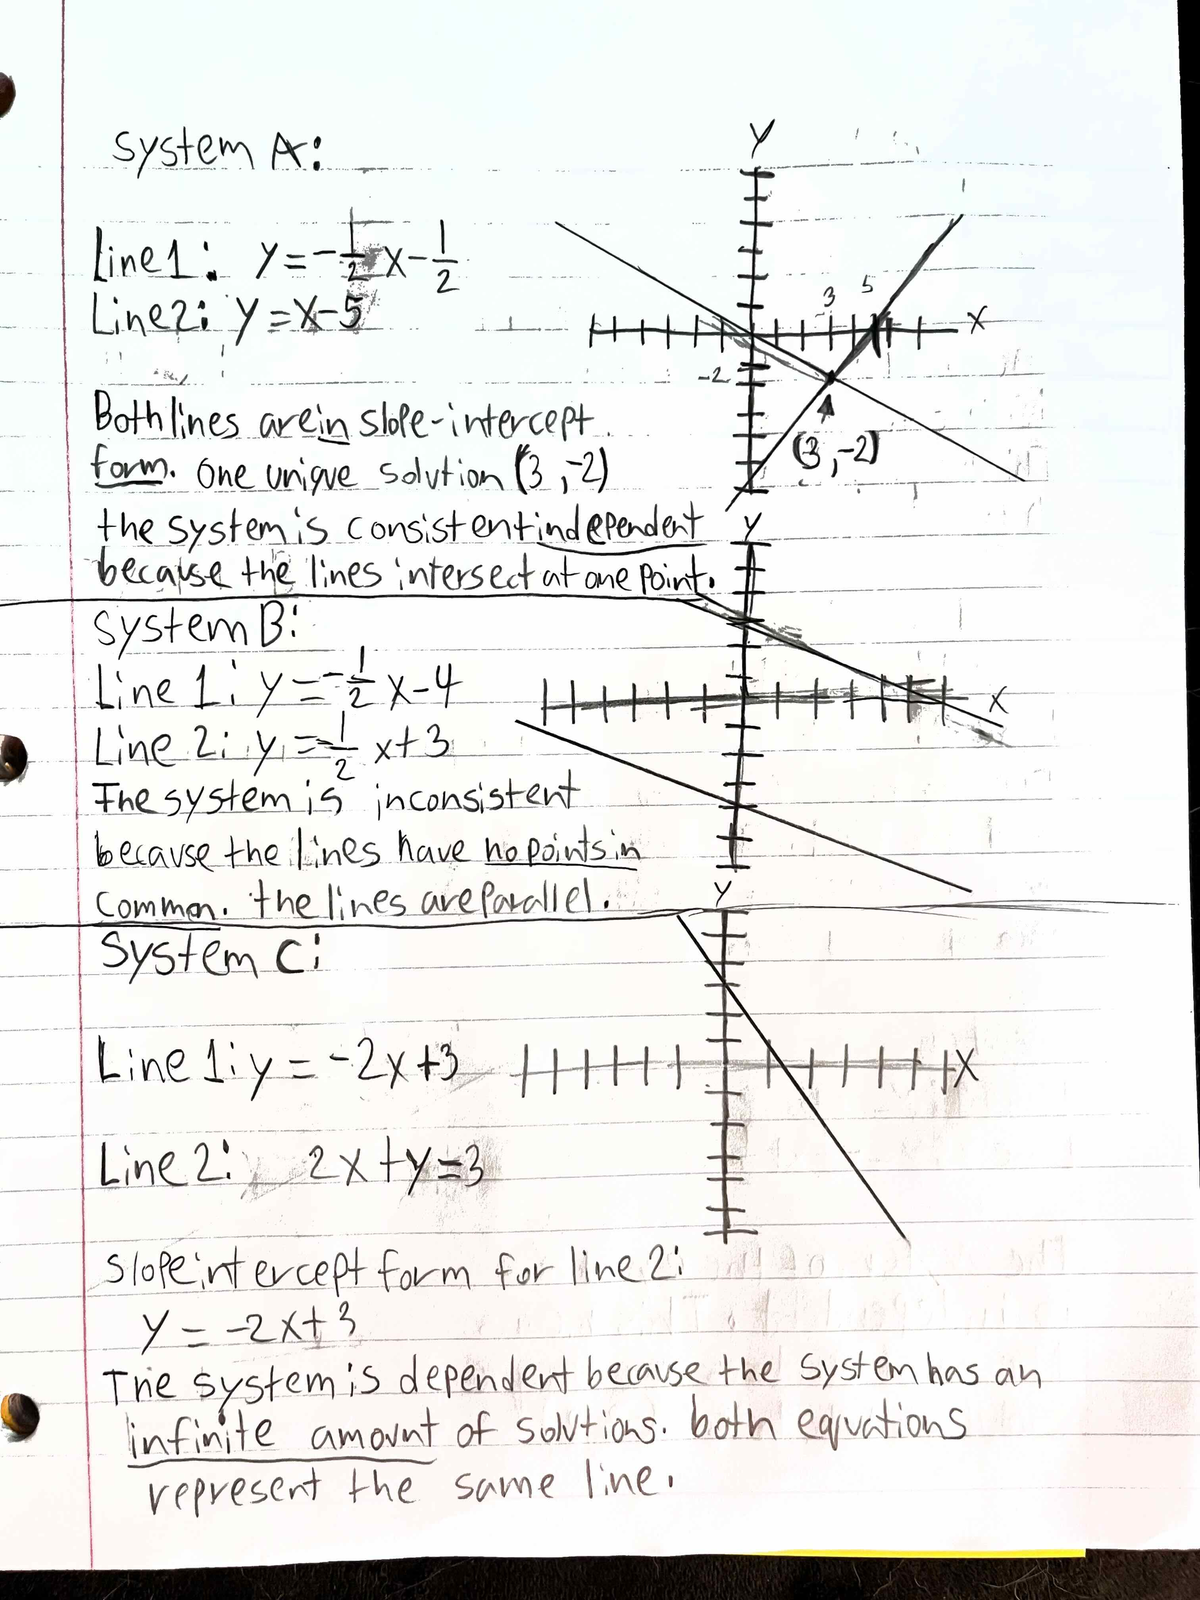 System A:
Line 1: y = -1/2 x - 1/2
Line 2: y = x - 5
Both lines are in slope-intercept
form. One unique solution (3, -2)
the system is consistent independent
because the lines intersect at one point.
Y
3 5
X
-2
(3, -2)
System B:
Line 1: y = -1/2 x - 4
Line 2: y = -1/2 x + 3
The system is inconsistent
because the lines have no points in
common. the lines are parallel.
Y
X
System C:
Line 1: y = -2x + 3
Line 2: 2x + y = 3
Y
X
Slope intercept form for line 2:
y = -2x + 3
The system is dependent because the system has an
infinite amount of solutions. both equations
represent the same line.